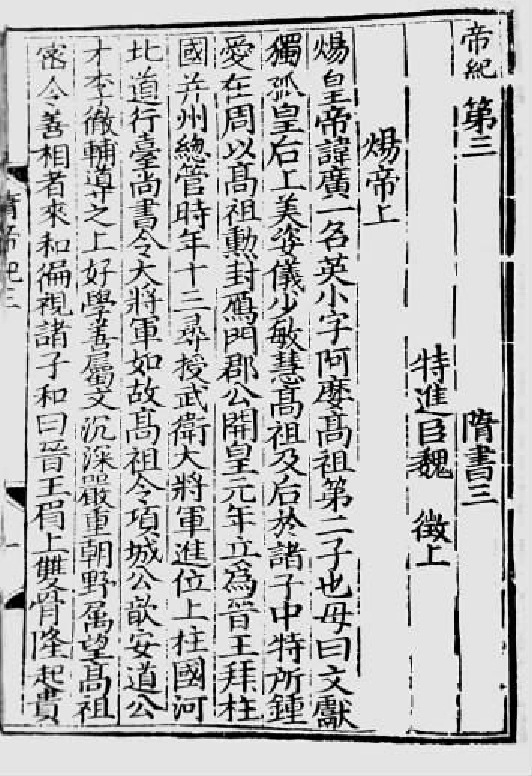 帝紀第三 隋書三
特進臣魏 徵上
煬帝上
煬皇帝諱廣一名英小字阿㦄高祖第二子也母曰文獻
獨孤皇后上美姿儀少敏慧髙祖及后於諸子中特所鍾
愛在周以髙祖勲封鴈門郡公開皇元年立爲晉王拜柱
國并州總管時年十三尋授武衛大將軍進位上柱國河
北道行臺尚書令大將軍如故髙祖令項城公歆安道公
才李徹輔導之上好學善屬文沉深嚴重朝野属望髙祖
密令善相者來和徧視諸子和曰晉王眉上雙骨隆起貴
隋帝紀三
一